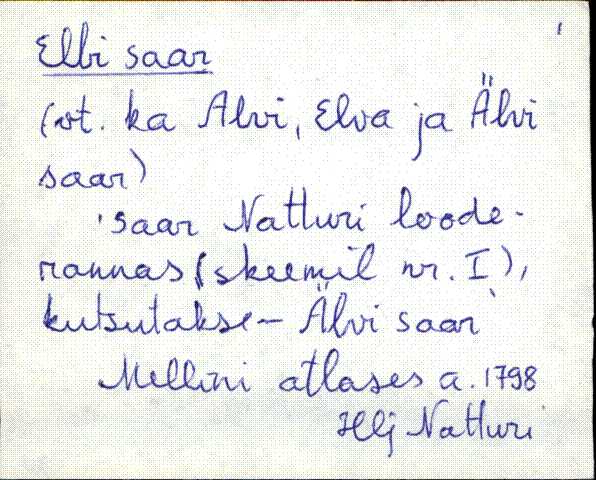 Elbi saar
(vt. ka Alvi, Elva ja Älvi
saar)
'saar Natturi loode-
rannas (skeemil nr. I),
kutsutakse - Älvi saar'
Mellini atlases a. 1798
Hlj Natturi